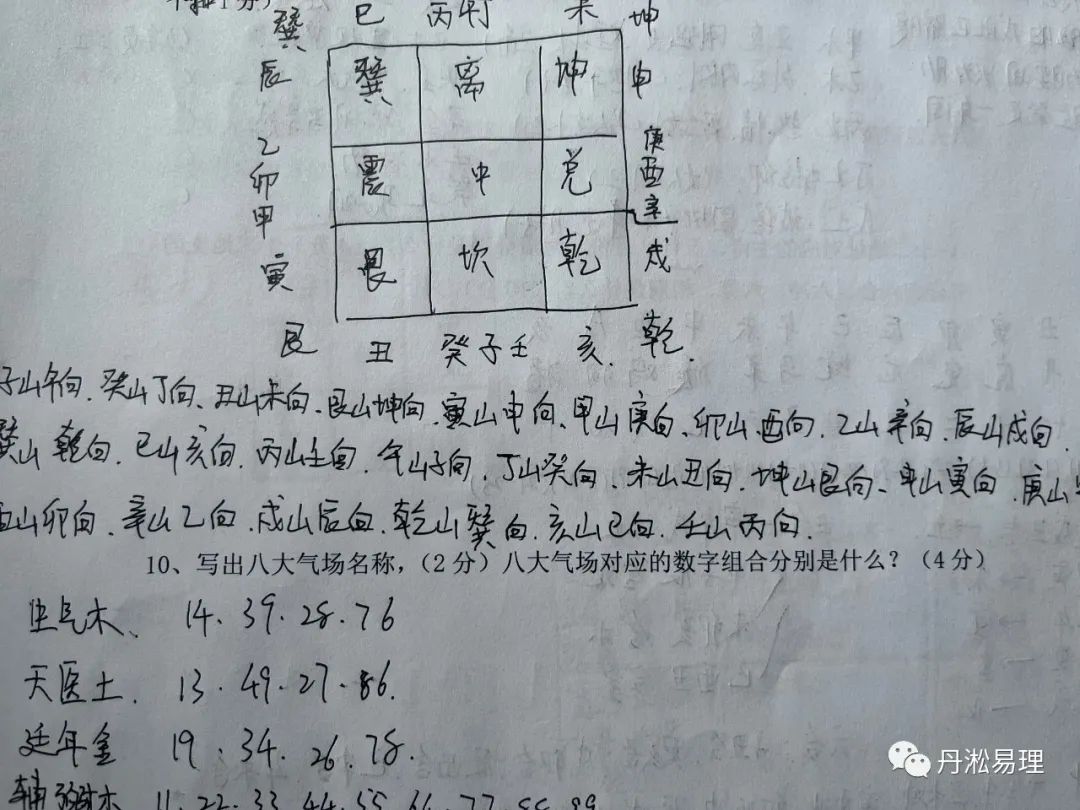 巽 巳 丙午丁 未 坤
辰 巽 离 坤 申
乙 庚
卯 震 中 兑 酉
甲 辛
寅 艮 坎 乾 戌
艮 丑 癸子壬 亥. 乾.
子山午向、癸山丁向、丑山未向、艮山坤向、寅山申向、甲山庚向、卯山酉向、乙山辛向、辰山戌向、
巽山乾向、巳山亥向、丙山壬向、午山子向、丁山癸向、未山丑向、坤山艮向、申山寅向、庚山
酉山卯向、辛山乙向、戌山辰向、乾山巽向、亥山巳向、壬山丙向.
10、写出八大气场名称，（2 分）八大气场对应的数字组合分别是什么？（4 分）
生气木、 14. 39. 28. 76
天医土. 13. 49. 27. 86.
延年金 19. 34. 26. 78.
辅弼木 11. 22. 33. 44. 55. 66. 77. 88. 99
丹淞易理